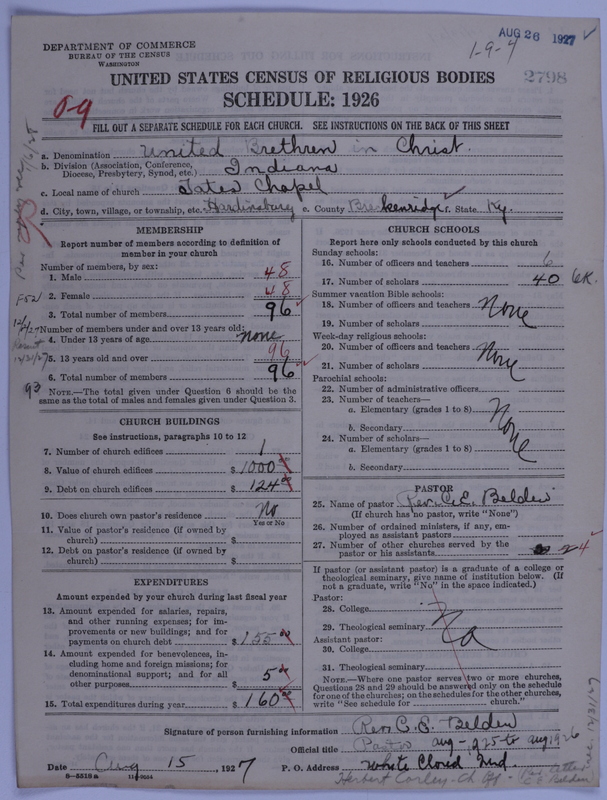 AUG 26 1927
1-9-4
DEPARTMENT OF COMMERCE
BUREAU OF THE CENSUS
WASHINGTON
UNITED STATES CENSUS OF RELIGIOUS BODIES
2798
SCHEDULE: 1926
FILL OUT A SEPARATE SCHEDULE FOR EACH CHURCH. SEE INSTRUCTIONS ON THE BACK OF THIS SHEET
a. Denomination United Brethren in Christ.
b. Division (Association, Conference, Diocese, Presbytery, Synod, etc.) Indiana
c. Local name of church Tates Chapel
d. City, town, village, or township, etc. Hardinsburg e. County Breckenridge f. State Ky.
MEMBERSHIP
Report number of members according to definition of
member in your church
Number of members, by sex:
1. Male 48
2. Female 48
3. Total number of members 96
Number of members under and over 13 years old:
4. Under 13 years of age none
5. 13 years old and over 96
6. Total number of members 96
93
NOTE.—The total given under Question 6 should be the
same as the total of males and females given under Question 3.
CHURCH BUILDINGS
See instructions, paragraphs 10 to 12
7. Number of church edifices 1
8. Value of church edifices $ 1000.00
9. Debt on church edifices $ 124.00
10. Does church own pastor's residence No
Yes or No
11. Value of pastor's residence (if owned by
church) $
12. Debt on pastor's residence (if owned by
church) $
EXPENDITURES
Amount expended by your church during last fiscal year
13. Amount expended for salaries, repairs,
and other running expenses; for im-
provements or new buildings; and for
payments on church debt $ 155.00
14. Amount expended for benevolences, in-
cluding home and foreign missions; for
denominational support; and for all
other purposes $ 5.00
15. Total expenditures during year $ 160.00
CHURCH SCHOOLS
Report here only schools conducted by this church
Sunday schools:
16. Number of officers and teachers 6
17. Number of scholars 40 OK.
Summer vacation Bible schools:
18. Number of officers and teachers None
19. Number of scholars
Week-day religious schools:
20. Number of officers and teachers None
21. Number of scholars
Parochial schools:
22. Number of administrative officers
23. Number of teachers—
a. Elementary (grades 1 to 8) None
b. Secondary
24. Number of scholars—
a. Elementary (grades 1 to 8)
b. Secondary
PASTOR
25. Name of pastor Rev. C. E. Belden
(If church has no pastor, write "None")
26. Number of ordained ministers, if any, em-
ployed as assistant pastors
27. Number of other churches served by the
pastor or his assistants 4
If pastor (or assistant pastor) is a graduate of a college or
theological seminary, give name of institution below. (If
not a graduate, write "No" in the space indicated.)
Pastor:
28. College
29. Theological seminary No
Assistant pastor:
30. College
31. Theological seminary
NOTE.—Where one pastor serves two or more churches,
Questions 28 and 29 should be answered only on the schedule
for one of the churches; on the schedules for the other churches,
write "See schedule for church."
Signature of person furnishing information Rev C. E. Belden
Official title Pastor Aug - 925 to Aug 1926
Date Aug 15, 1927 P. O. Address White Cloud Ind.
8—5518 a
Herbert Corley - Ch. Off - Per letter C E Belden